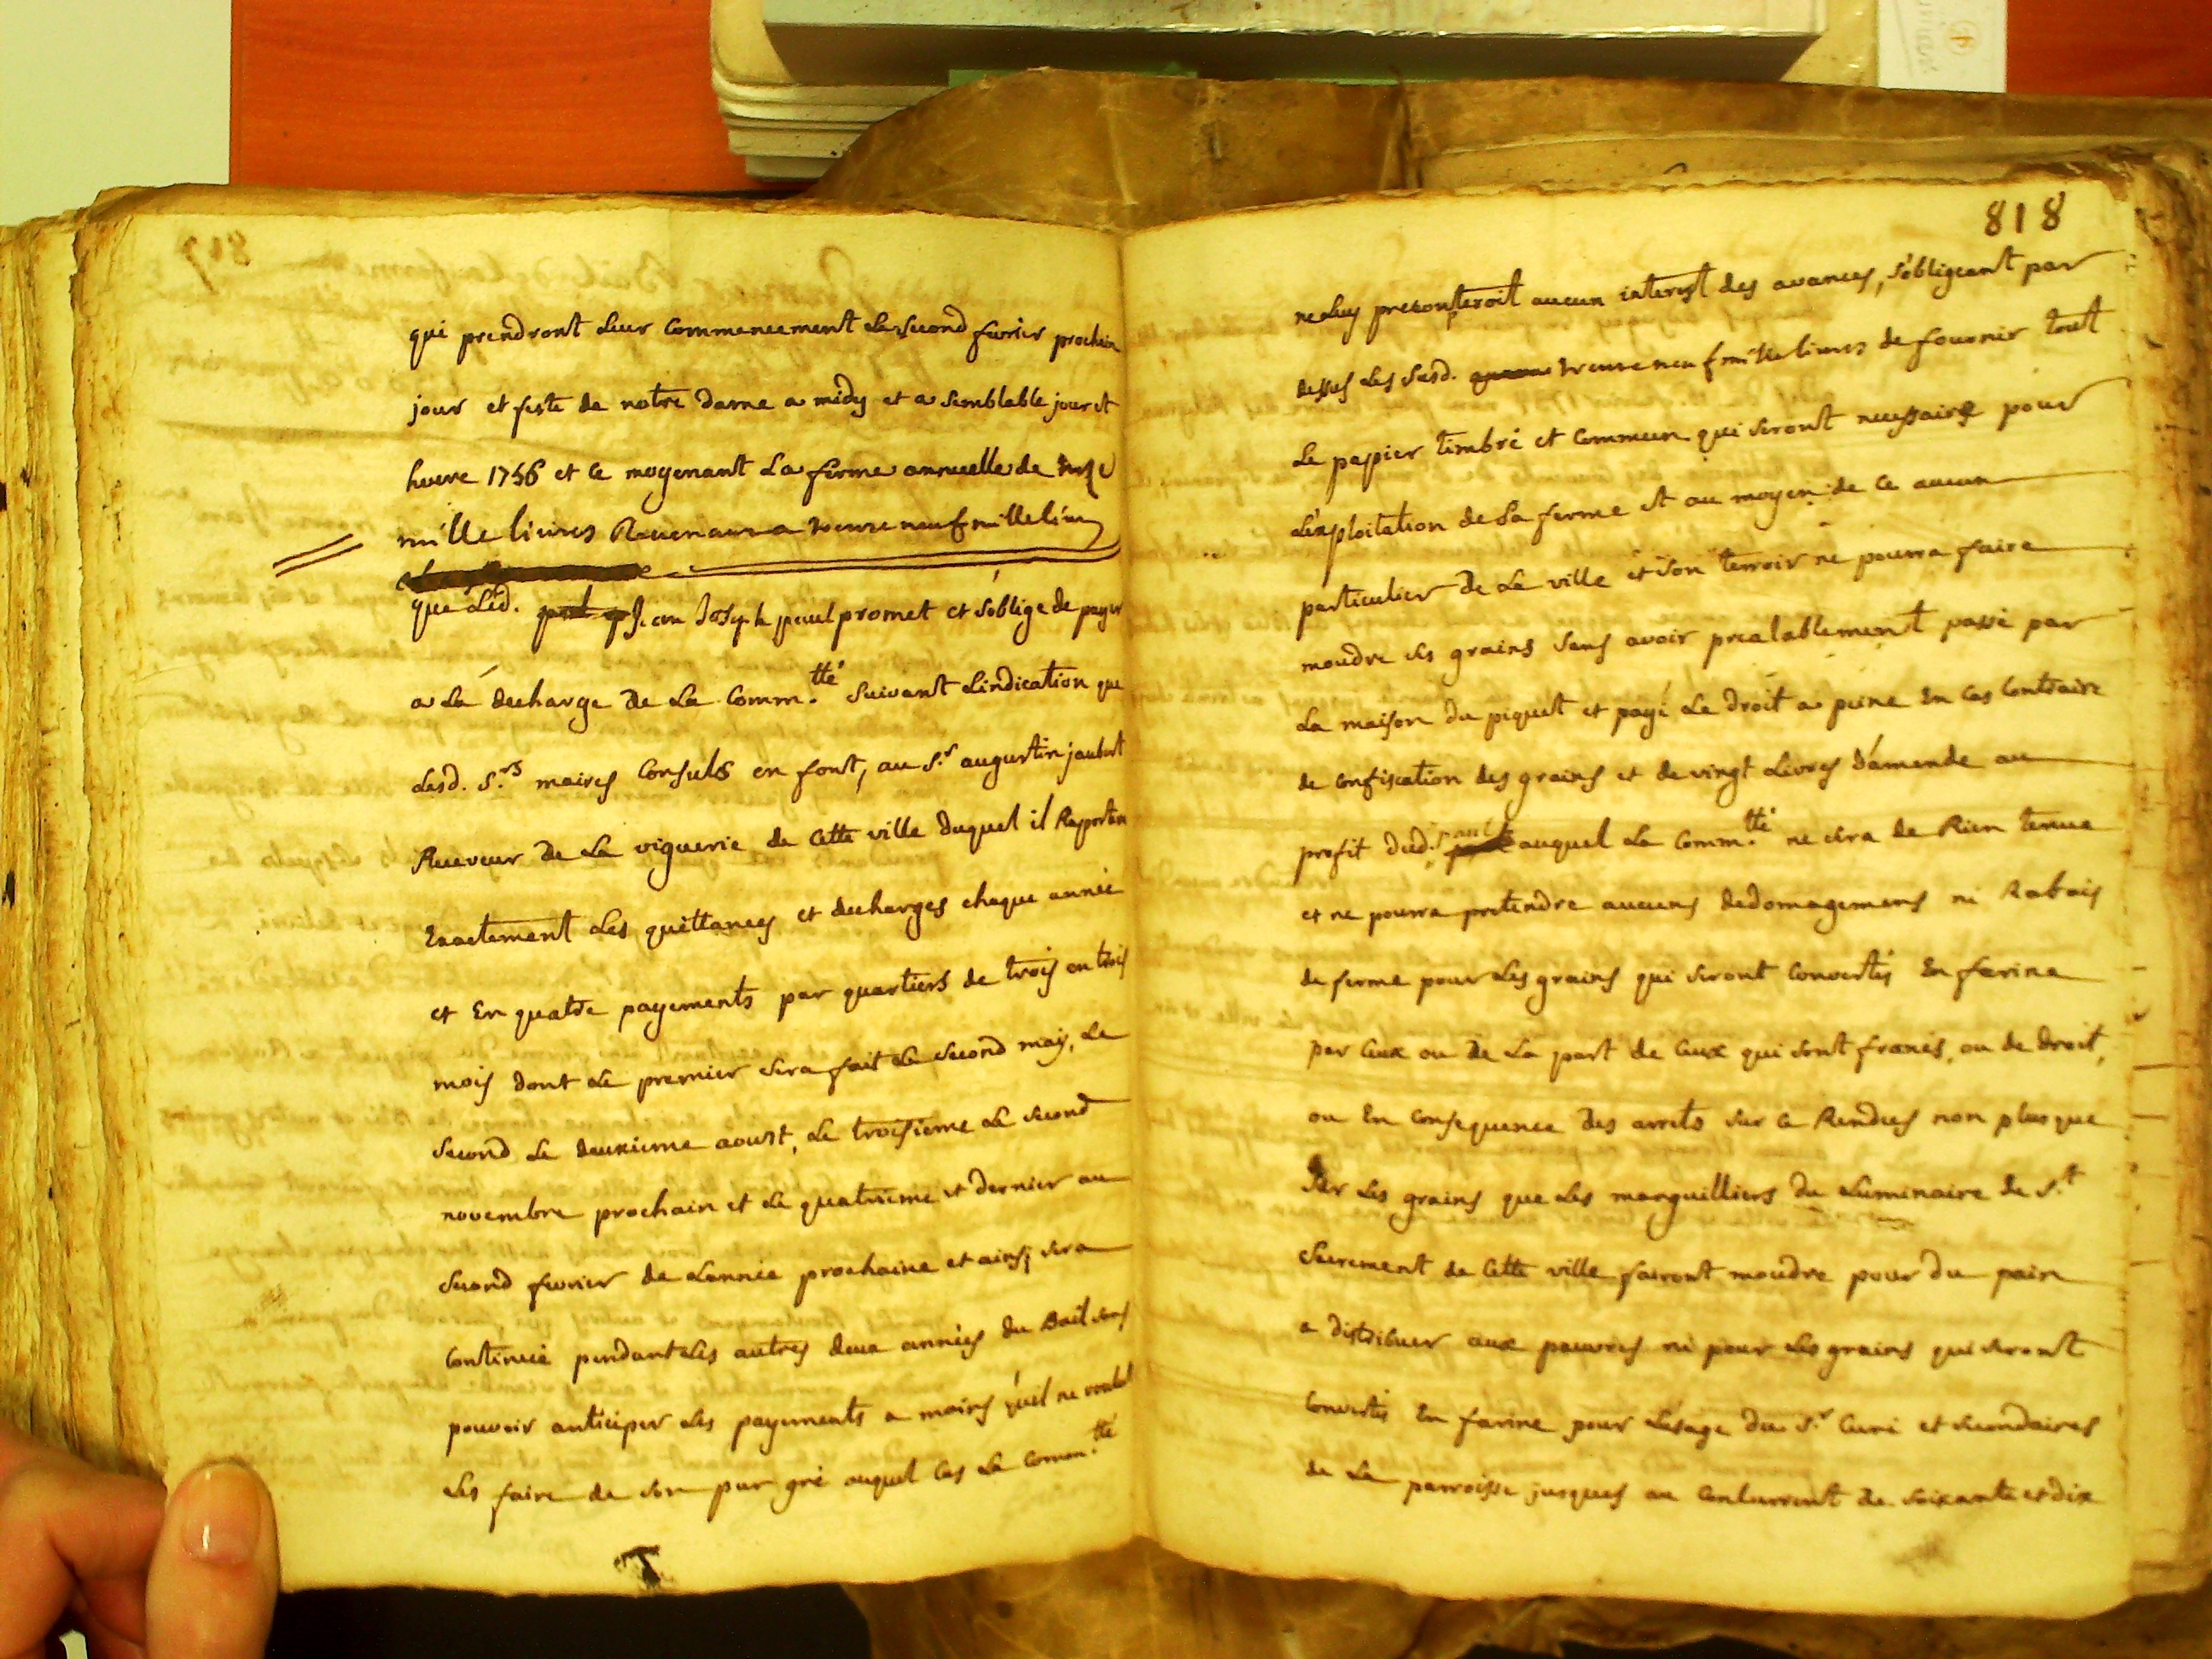 qui prendront leur commencement le second fevrier prochain
jour et feste de notre dame a midy et a semblable jour et
heure 1756 et ce moyenant la ferme annuelle de
mille livres Revenant a trente neuf mille livres
que led. Jean Joseph paul promet et s'oblige de payer
a la decharge de la Comm.tté suivant l'indication que
lesd. S.rs maires Consuls en font, au S.r augustin jaubert
Receveur de la viguerie de cette ville duquel il Rapportera
Exactement les quittances et decharges chaque année
et En quatre payements par quartiers de trois en trois
mois dont le premier sera fait le second may, le
second le deuxieme aoust, le troisieme le second
novembre prochain et le quatrieme et dernier au
second fevrier de l'année prochaine et ainsi sera
continué pendant les autres deux années du Bail sans
pouvoir anticiper les payements a moins qu'il ne voulut
les faire de son pur gré auquel cas la Comm.tté
818
ne luy aucun interest des avances, s'obligeant par
dessus les susd. trente neuf mille livres de fournir tout
le papier timbré et commun qui seront necessaire pour
l'exploitation de sa ferme et au moyen de ce aucun
particulier de la ville et son terroir ne pourra faire
moudre ses grains sans avoir prealablement passé par
la maison du piquet et payé le droit a peine En cas contraire
de confiscation des grains et de vingt livres d'amende au
profit dud. paul auquel la Comm.tté ne sera de Rien tenue
et ne pourra pretendre aucuns dedomagemens ni Rabais
de ferme pour les grains qui seront convertis En farine
par ceux ou de la part de ceux qui sont francs, ou de droit,
ou En consequence des arrets sur ce Rendues non plus que
Par les grains que les marguilliers du Luminaire de S.t
Sacrement de cette ville fairont moudre pour du pain
a distribuer aux pauvres ni pour les grains qui seront
convertis En farine pour l'usage du S.r Curé et secondaires
de la parroisse jusques au concurrent de soixante et dix